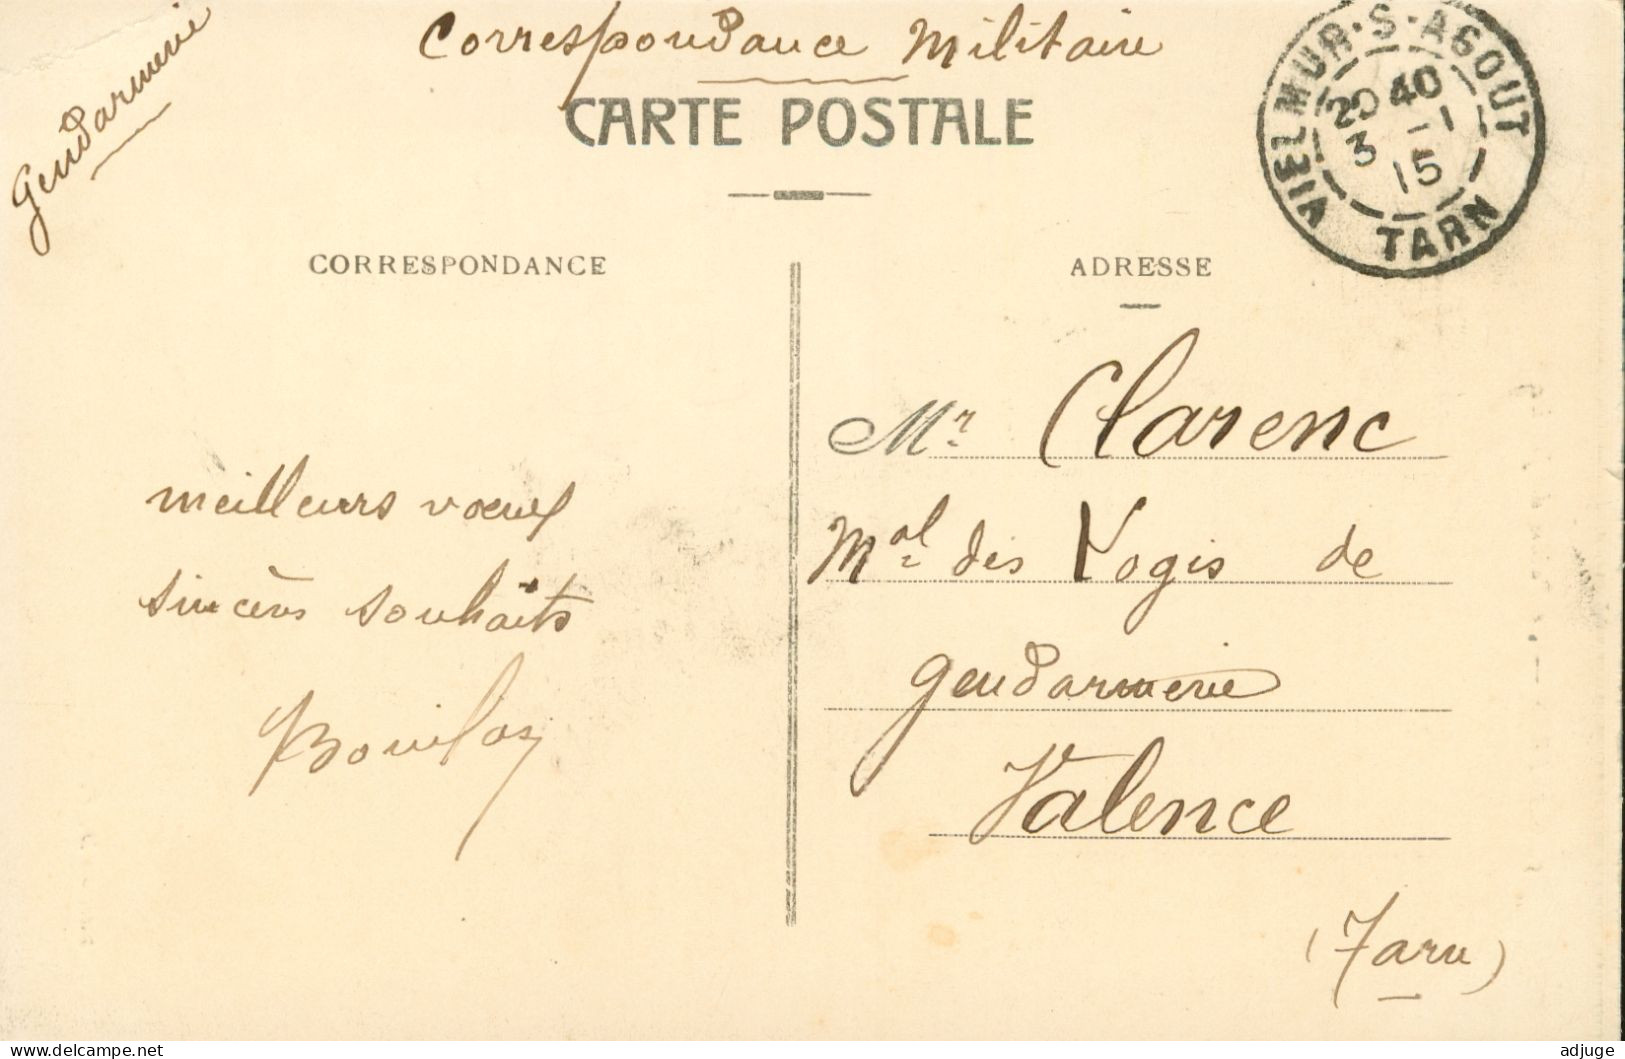 Gendarmerie
Correspondance Militaire
CARTE POSTALE
VIELMUR·S·AGOUT
20 40
3 -1
15
TARN
CORRESPONDANCE
ADRESSE
meilleurs vœux
sincères souhaits
Mr Clarenc
Mal des Logis de
gendarmerie
Valence
(Tarn)
www.delcampe.net
adjuge